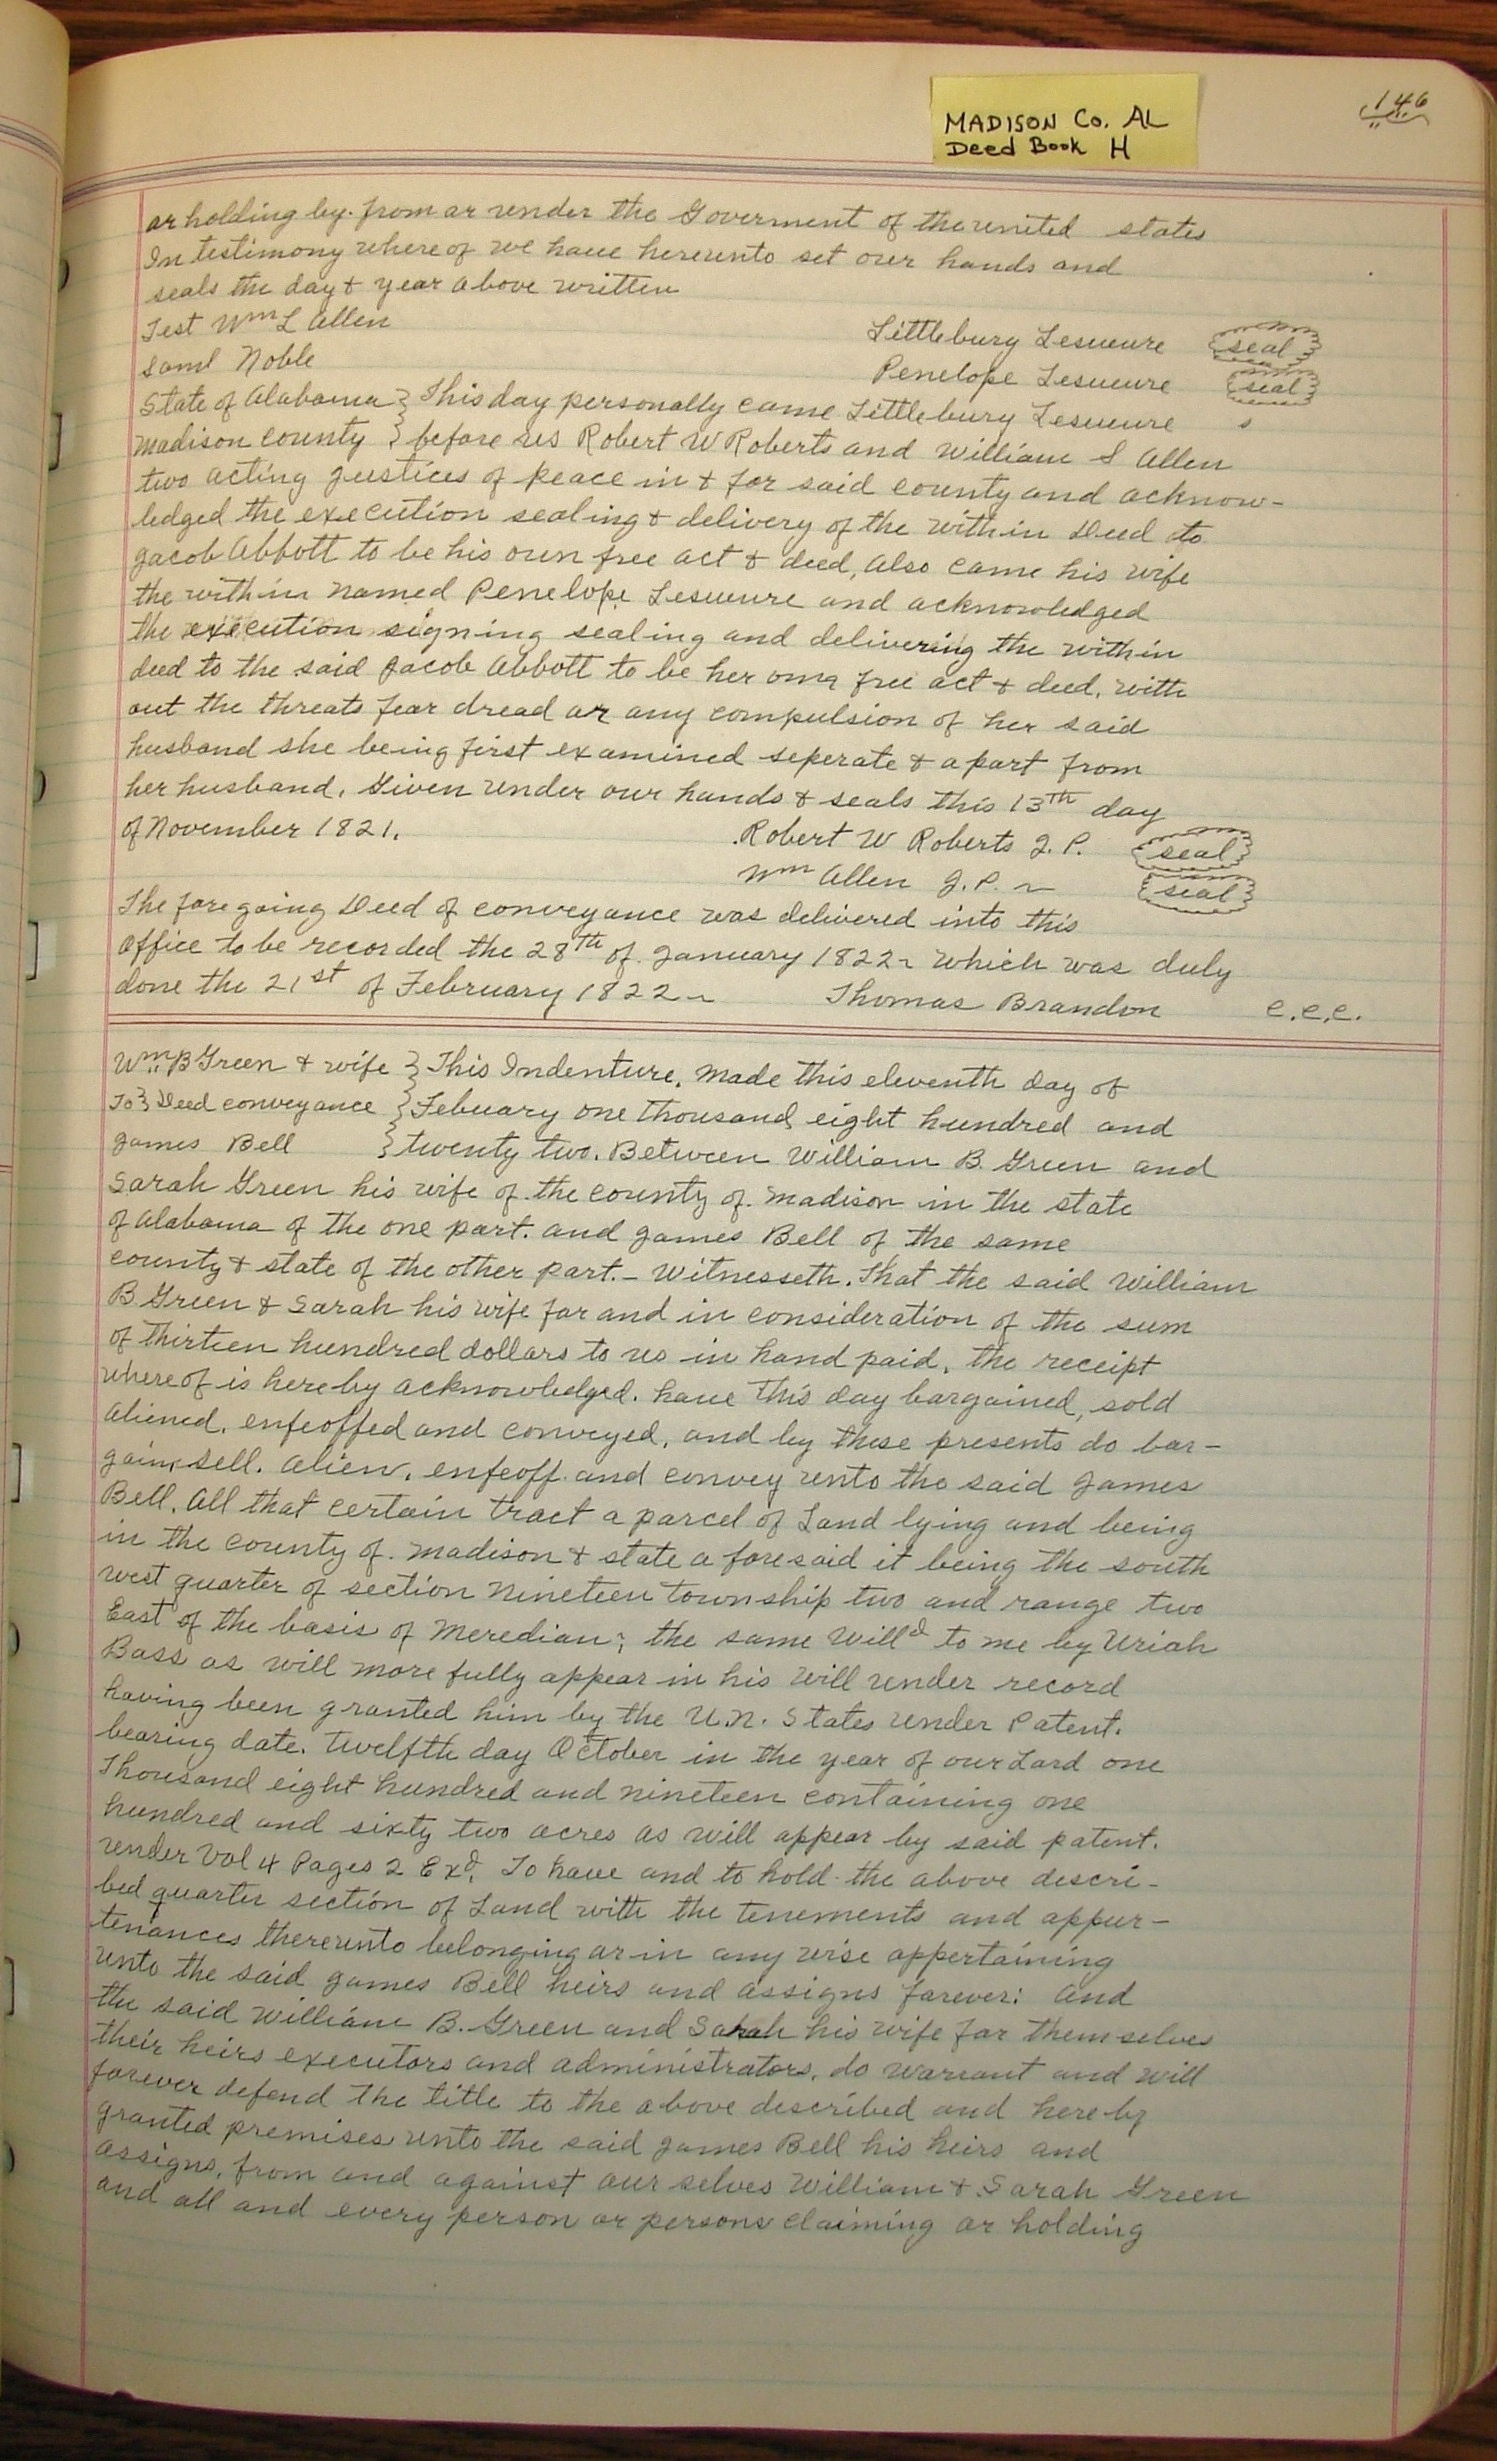 MADISON Co. AL
Deed Book H
146
or holding by. from or under the Goverment of the united states
In testimony where of we have hereunto set our hands and
seals the day & year above written
Test Wm L Allen
Littlebury Lesueure seal
Saml Noble
Penelope Lesueure seal
State of Alabama } This day personally came Littlebury Lesueure s
Madison County } before us Robert W Roberts and William S Allen
two acting justices of peace in & for said county and acknow-
ledged the execution sealing & delivery of the within Deed to
Jacob Abbott to be his own free act & deed, also came his wife
the within named Penelope Lesueure and acknowledged
the execution signing sealing and delivering the within
deed to the said Jacob Abbott to be her free act & deed. with
out the threats fear dread or any compulsion of her said
husband she being first examined seperate & apart from
her husband. Given under our hands & seals this 13th day
of November 1821.
Robert W Roberts J. P. seal
Wm Allen J. P. ~ seal
The fore going Deed of conveyance was delivered into this
Office to be recorded the 28th of January 1822 ~ which was duly
done the 21st of February 1822 ~ Thomas Brandon c.c.c.
Wm B Green & wife } This Indenture. made this eleventh day of
To } Deed conveyance } Febuary one thousand eight hundred and
James Bell } twenty two. Between William B. Green and
Sarah Green his wife of the county of. Madison in the state
of Alabama of the one part. and James Bell of the same
county & state of the other part. – Witnesseth. That the said William
B. Green & Sarah his wife for and in consideration of the sum
of thirteen hundred dollars to us in hand paid. the receipt
where of is hereby acknowledged. have this day bargained, sold
aliened. enfeoffed and conveyed, and by these presents do bar-
gain, sell. alien, enfeoff. and convey unto the said James
Bell. All that certain tract a parcel of Land lying and being
in the county of. Madison & state a foresaid it being the south
west quarter of section nineteen township two and range two
East of the basis of Meredian; the same Willd to me by Uriah
Bass as will more fully appear in his will under record
having been granted him by the U.n. States under Patent.
bearing date. twelfth day October in the year of our Lord one
Thousand eight hundred and nineteen containing one
hundred and sixty two acres as will appear by said patent.
under Vol 4 Pages 2 Exd. To have and to hold the above descri-
bed quarter section of Land with the tenements and appur-
tenances thereunto belonging or in any wise appertaining
unto the said James Bell heirs and assigns forever: and
the said William B. Green and Sarah his wife for themselves
their heirs executors and administrators. do warrant and will
forever defend the title to the above described and hereby
granted premises unto the said James Bell his heirs and
assigns, from and against our selves William & Sarah Green
and all and every person or persons claiming or holding